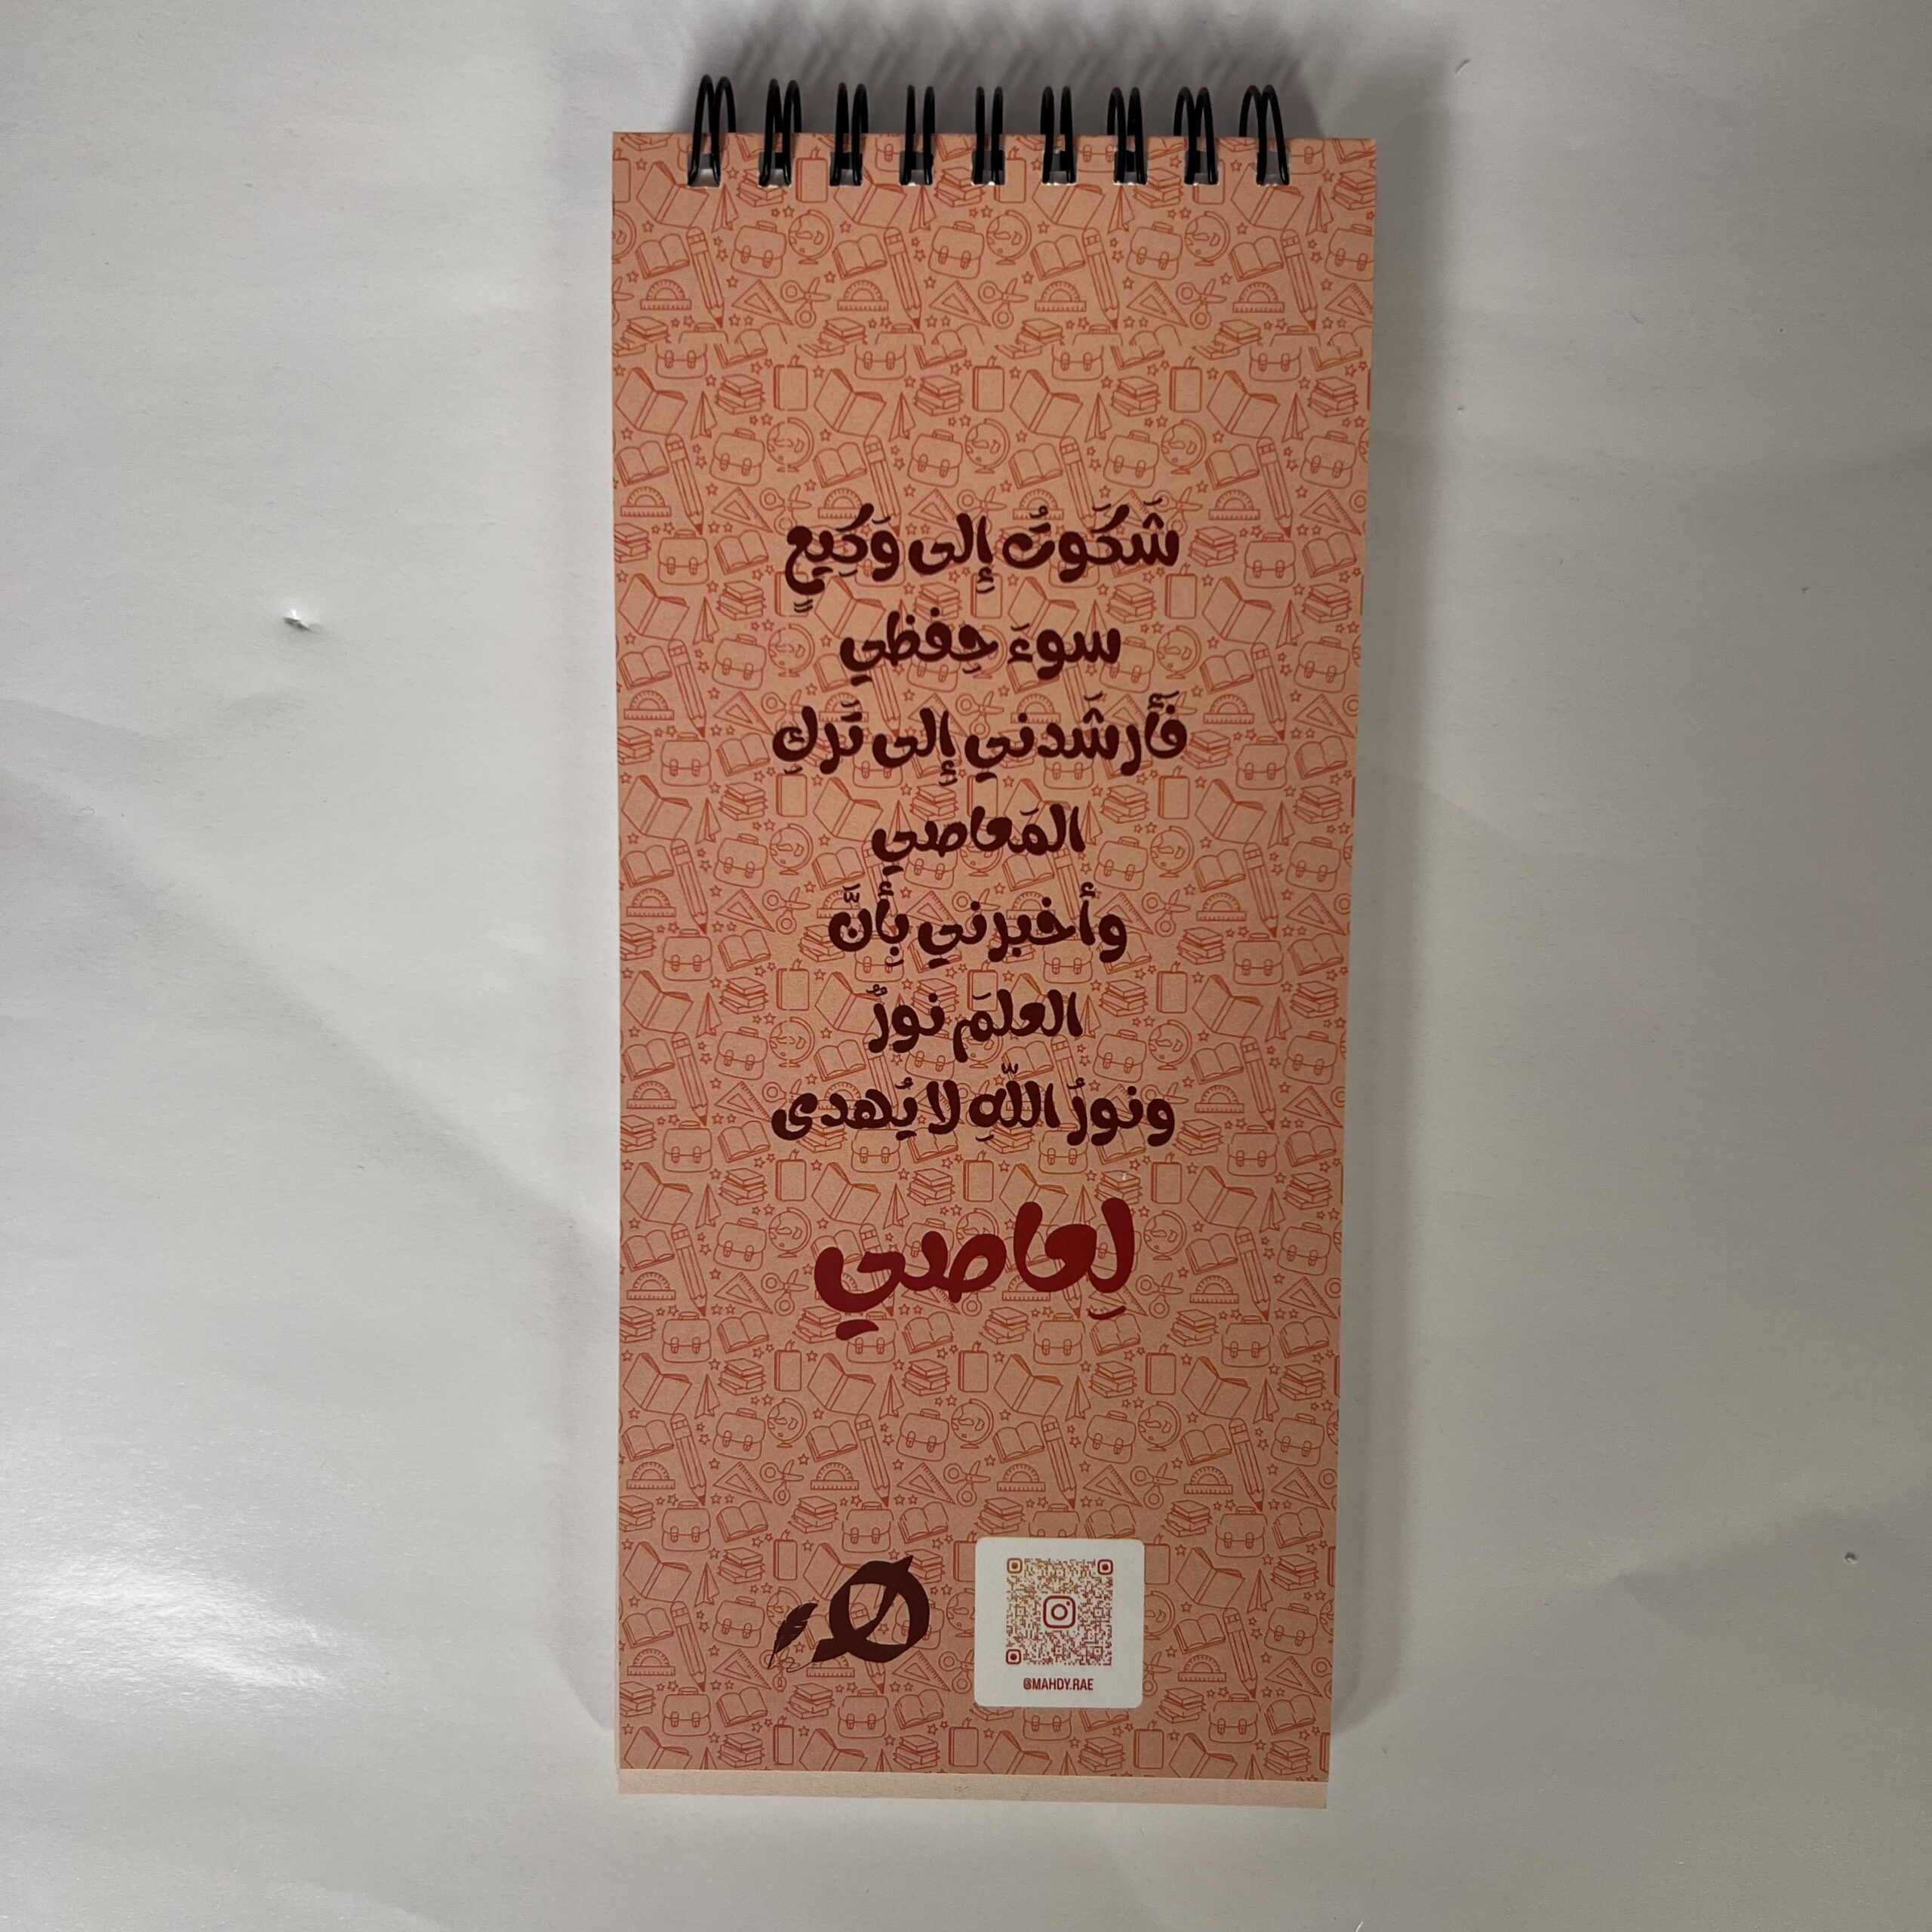 شَكَوتُ إِلى وَكِيعٍ
سوءَ حِفظي
فَأَرشَدني إِلى تَركِ
المَعاصي
وأخبرني بِأَنَّ
العلمَ نورٌ
ونورُ اللّهِ لا يُهدى
لِعاصي
@MAHDY.RAE